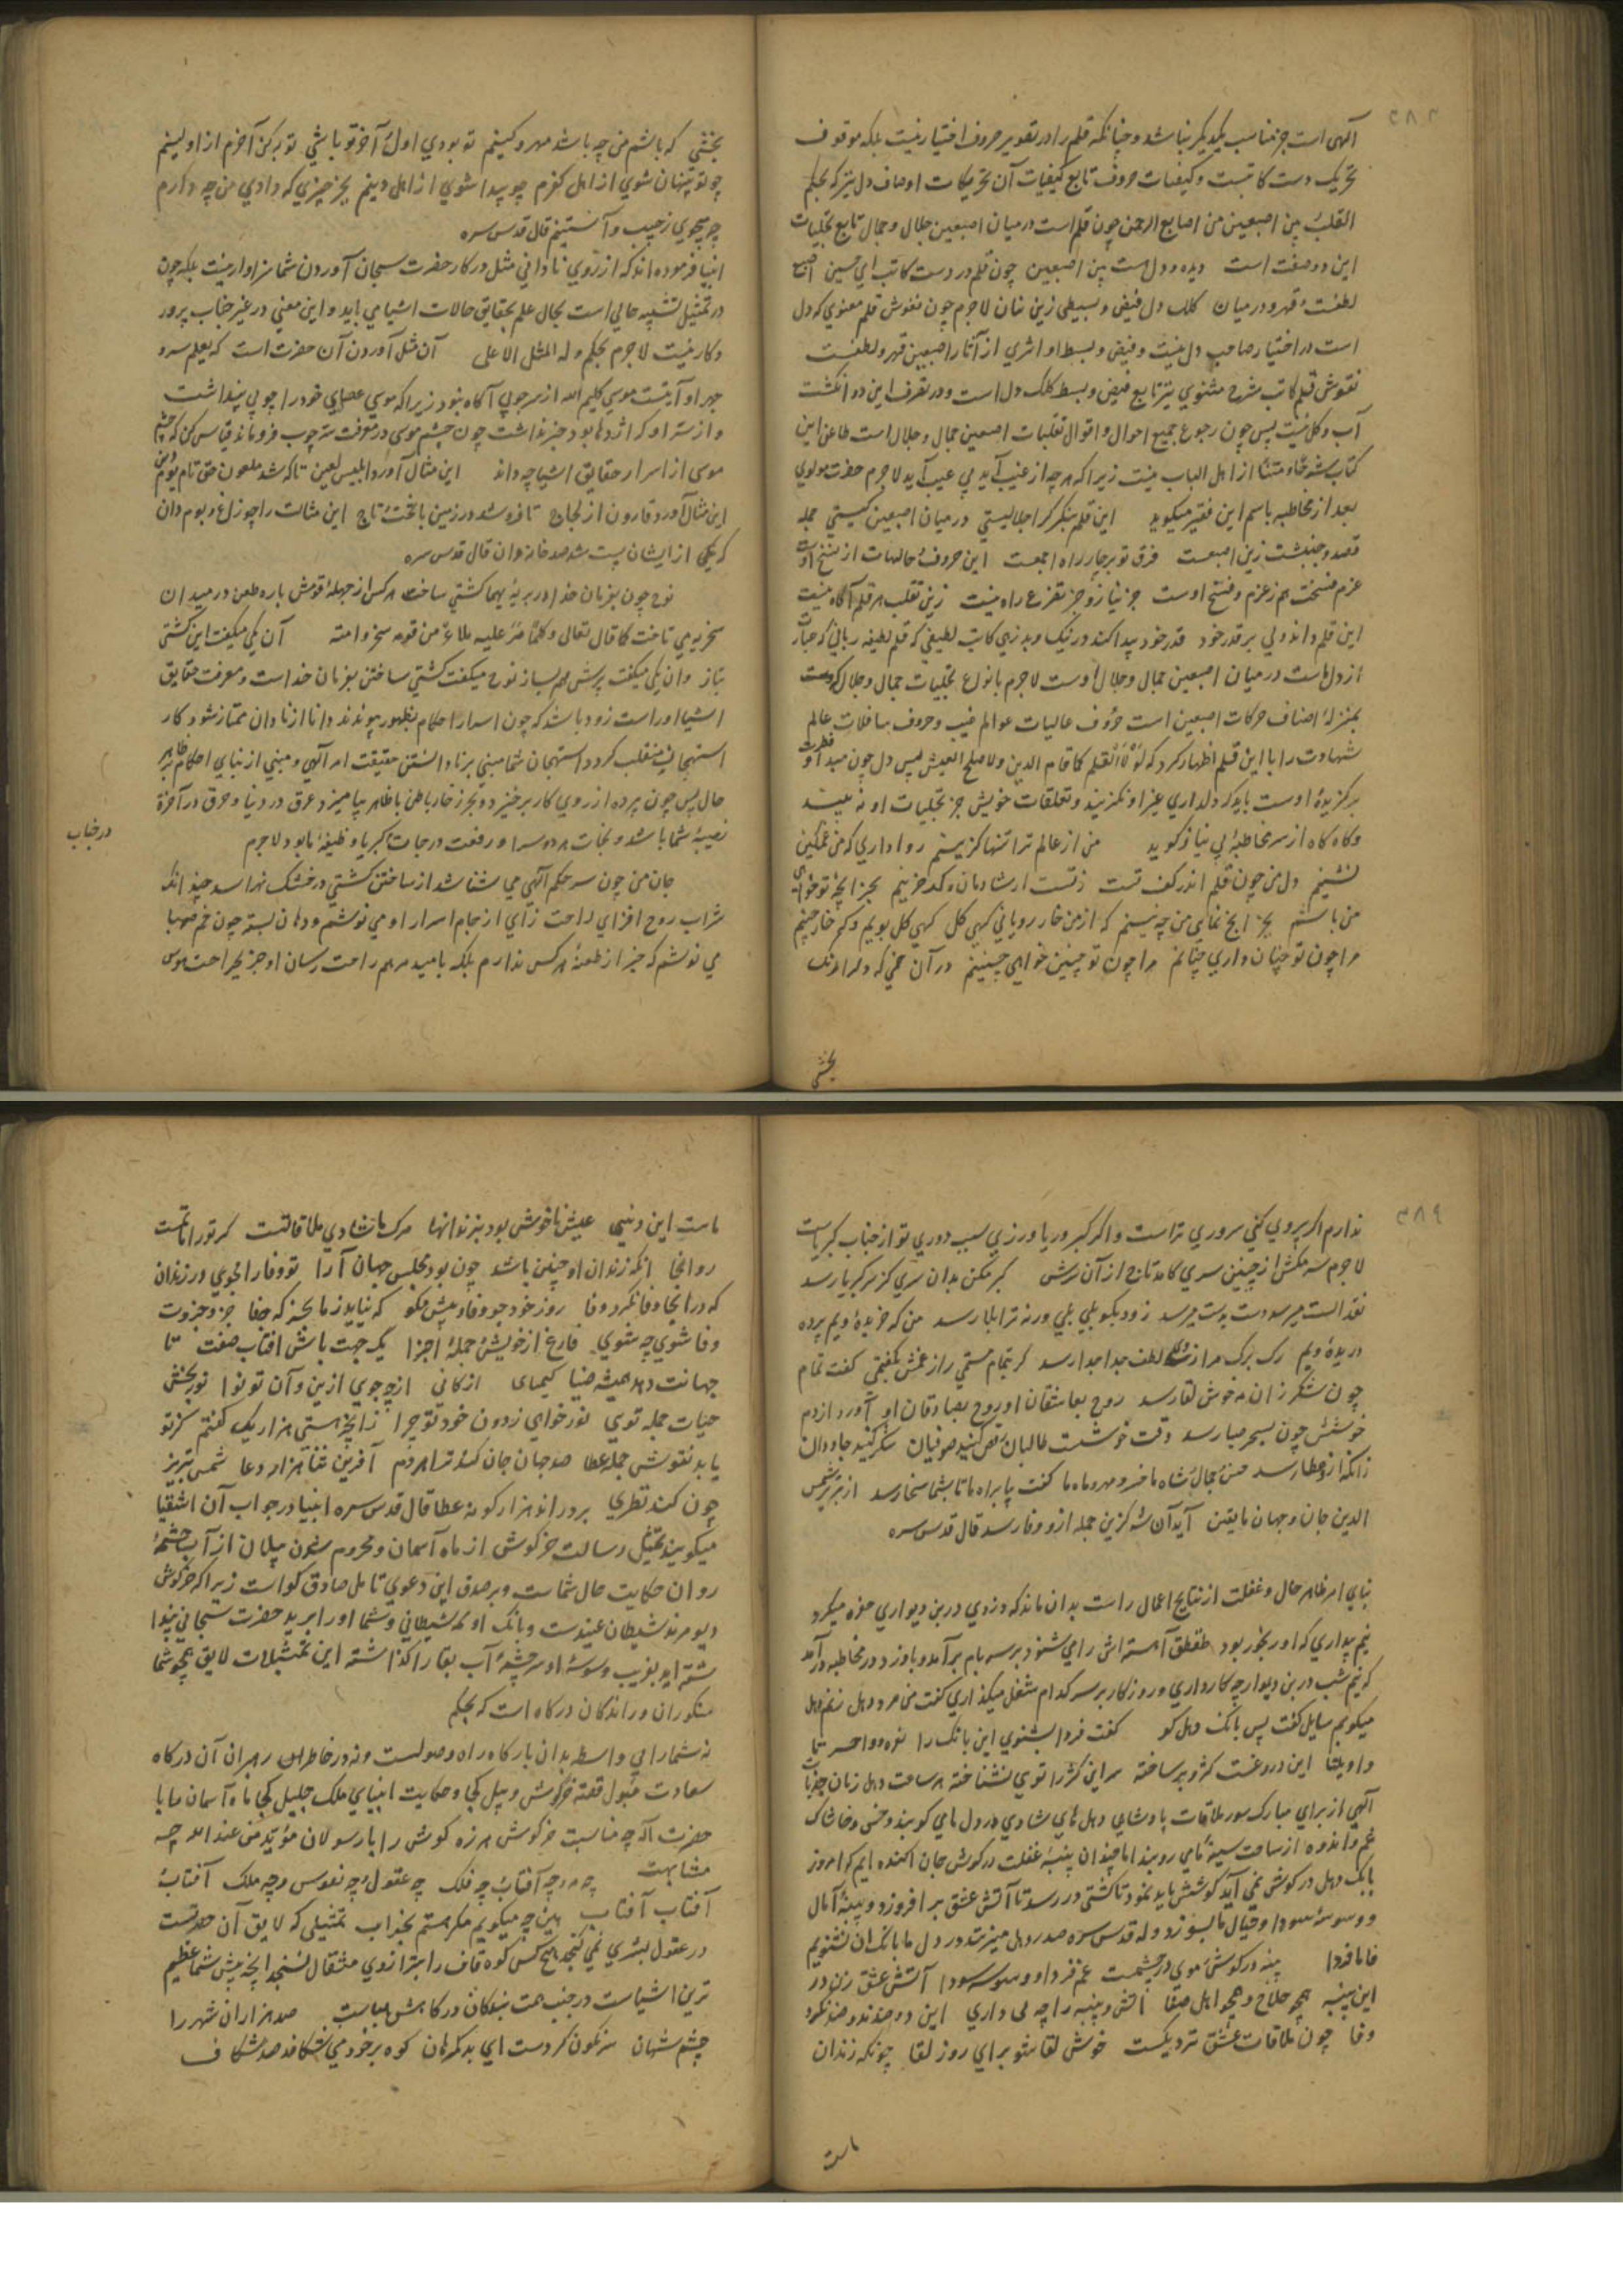 آلهی است جز مناسب یکدیگر نباشد و چنانکه قلم را در تقویر حروف اختیار نیست بلکه موقوف
تحریک دست کاتبست و کیفیات حروف تابع کیفیات آن تحریکات اوصاف دل نیز که بحکم
القلب بین اصبعین من اصابع الرحمن چون قلم است در میان اصبعین جلال و جمال تابع تجلیات
این دو صفت است دیده و دل هست بین اصبعین چون قلم در دست کاتب ای حسین اصبع
لطفست و قهر و در میان کلک دل قبض و بسطی زین بنان لاجرم چون نقوش قلم معنوی که دل
است در اختیار صاحب دل نیست و قبض و بسط او اثری از آثار اصبعین قهر و لطفست
نقوش قلم کاتب شرح مثنوی نیز تابع قبض و بسط کلک دل است و در تصرف این دو انگشت
آب و گل نیست پس چون رجوع جمیع احوال و اقوال تقلبات اصبعین جمال و جلال است طاعن این
کتاب از اهل الباب نیست زیرا که هر چه از غیب آید بی عیب آید لاجرم حضرت مولوی
بعد از مخاطبه باسم این فقیر میگوید این قلم بنگر گر اجلالیستی در میان اصبعین کیستی جمله
قصد و جنبشت زین اصبعست فرق تو بر چار راه اجمعست این حروف حالهات از نسخ اوست
عزم فسخت هم ز عزم و فسخ اوست جز نیاز و جز تضرع راه نیست زین تقلب هر قلم آگاه نیست
این قلم داند ولی بر قدر خود قدر خود پیدا کند در نیک و بد زهی کاتب لطیفی که قلم لطیفه ربانی که عبارت
از دل است در میان اصبعین جمال و جلال اوست لاجرم بانواع تجلیات جمال و جلال که
بمنزلهٔ اصناف حرکات اصبعین است حروف عالیات عوالم غیب و حروف سافلات عالم
شهادت را با این قلم اظهار کرد که لولا القلم کما قام الدین ولا صلح العیش پس دل چون مبدا فطرت او
برگزیدهٔ اوست باید که دلداری غیر او نگزیند و تعلقات خویش جز تجلیات او نه بیند
و گاه گاه از سر مخاطبهٔ بی نیاز گوید من از عالم ترا تنها گزینم روا داری که من غمگین
نشینم دل من چون قلم اندر کف تست ز تست ار شادمان و گر حزینم بجز آنچه تو خواهی
من باشم بجز آنچ نمایی من چه بینم گه از من خار رویانی گهی گل گهی گل بویم و گه خار چینم
مرا چون تو چنان داری چنانم مرا چون تو چنین خواهی چنینم در آن خمی که دل را رنگ
بخشی
بخشی که باشم من چه باشد مهر و کینم تو بودی اول و آخر تو باشی تو به کن آخرم از اولینم
چو تو پنهان شوی از اهل کفرم چو پیدا شوی از اهل دینم بجز چیزی که دادی من چه دارم
چه میجویی ز جیب و آستینم قال قدس سره
انبیا فرموده اند که از روی نادانی مثل در کار حضرت سبحان آوردن شما سزاوار نیست بلکه چون
در تمثیل تشبیه حالی است بحال علم بحقایق حالات اشیا می باید و این معنی در غیر جناب پرور
دگار نیست لاجرم بحکم وله المثل الاعلی آن مثل آوردن آن حضرت است که بعلم سر و
جهر او آیتست موسی کلیم الله از سر چوبی آگاه نبود زیرا که موسی عصای خود را چوبی پنداشت
و از سر او که اژدها بود خبر نداشت چون چشم موسی در معرفت سر چوب فرو ماند قیاس کن که چشم
موسی از اسرار حقایق اشیا چه داند این مثال آورد ابلیس لعین تا که شد ملعون حق تا یوم دین
این مثال آورد قارون از لجاج تا فرو شد در زمین با تخت و تاج این مثالت را چو زاغ و بوم دان
که یکی از ایشان پست شد صد خاندان قال قدس سره
نوح چون بفرمان خدا در بریهٔ پهنا کشتی ساخت هر کس از جهلهٔ قومش باره طعن در میدان
سخریه می تاخت کما قال تعالی و کلما مر علیه ملاء من قومه سخروا منه آن یکی میگفت این کشتی
بتاز وان یکی میگفت پرش هم بساز نوح میگفت کشتی ساختن بفرمان خداست و معرفت حقایق
اشیا او راست زود باشد که چون اسرار احکام بظهور پیوندند دانا از نادان ممتاز شود کار
استهجان منقلب گردد استهجان شما مبنی بر نادانستن حقیقت امر آلهی و مبنی از بنای احکام ظاهر
حال پس چون پرده از روی کار برخیزد و بحر زخار باطن با ظاهر بیامیزد غرق در دنیا و حرق در آخرة
نصیبهٔ شما باشد و نجات هر دو سرا و رفعت درجات کبریا وظیفهٔ ما بود لاجرم
جان من چون سر حکم آلهی می شناشد از ساختن کشتی در خشک نهراسد چند انک
شراب روح افزای راحت زای از جام اسرار او می نوشم و دهان بسته چون خم صهبا
می نوشم که خبر از طعنهٔ هر کس ندارم بلکه بامید مرهم راحت رسان او جز بجراحت هوس
در جناب
ندارم اگر پیروی کنی سروری تراست و اگر کبر و ریا ورزی سبب دوری تو از جناب کبریاست
لاجرم سر مکش از چنین سری کامد تاج از آن سرش کبر مکن بدان سری کز بر کبریا رسد
نقد الست میرسد دست بدست میرسد زود بگو بلی بلی ورنه ترا بلا رسد من که خریدهٔ ویم پرده
دریدهٔ ویم رگ برگ مرا از لطف جدا جدا رسد گر بتمام مستمی راز غمش بگفتمی گفت تمام
چون شکر زان مه خوش لقا رسد روح بعاشقان او روح بصادقان او آورد از دم
خوششش چون بسحر صبا رسد وقت خوشست طالبان رقص کنید صوفیان شکر کنید جاودان
زانکه از و عطا رسد حسن و جمال شاه ما فر و مهر و ماه ما گفت بیا براه ما تا بشما سخا رسد از تبریز شمس
الدین جان و جهان ما یقین آید آن شه گزین جمله از و وفا رسد قال قدس سره
بنای امر ظاهر حال و غفلت از نتایج اعمال راست بدان ماند که دزدی در بن دیواری حفره میکرد
نیم بیداری که او رنجور بود طقطق آهسته اش را می شنود بر سر بام برآمد و با دزد در مخاطبه درآمد
که نیم شب در بن دیوار چه کار داری و روزگار بر سر کدام شغل میگذاری گفت من مرد دهل زنم دهل
میکوبم سایل گفت پس بانگ دهل کو گفت فردا بشنوی این بانگ را نعره وا حسرتا
وا ویلتا این دروغست کژ و بر ساخته سر این کژ را توی نشناخته هر ساعت دهل زنان جذبات
آلهی از برای مبارک سور ملاقات پادشاهی دهل های شادی در دل های کوبند و خس و خاشاک
غم و اندوه از ساحت سینه های روبند اما چندان پنبهٔ غفلت در گوش جان آکنده ایم که امروز
بانگ دهل در گوش نمی آید کوشش باید نمود تا کشتی در رسد تا آتش عشق بر افروزد و پنبهٔ آمال
و وسوسهٔ سودا و خیال ما بسوزد و له قدس سره صد دهل میزنند در دل ما بانگ آن بشنویم
فا ما فردا پنبه در گوش و موی در چشمست غم فردا و وسوسه سودا آتش عشق زن در
این پنبه همچو حلاج و همچو اهل صفا آتش و پنبه را چه می داری این دو ضدند و ضد نکرد
وفا چون ملاقات عشق نزدیکست خوش لقا شو برای روز لقا چونکه زندان
ماست
ماست این دنیی عیش ما خوش بود بیرون انها مرگ ما شادی و ملاقاتست گر تو را ماتمست
رو انجا آنکه زندان او چنین باشد چون بود مجلس جهان آرا تو وفا را مجوی در زندان
که در انجا وفا نکرد وفا روز خود جو وفا و پیش مگو که نیاید ز ما بجز که جفا جز و جزوت
وفا شوی چه شوی فارغ از خویش و جملهٔ اجزا یک جهت باش آفتاب صفت تا
جهانت دهد همیشه ضیا کیمیای از کانی از چه جوی ازین و آن تو نوا نور بخش
حیات جمله توی نور خواهی ز دون خود تو چرا ز آنچ هستی هزار یک گفتم کز تو
یابد نقوش جمله عطا صد جهان جان کند ترا هر دم آفرین و ثنا هزار دعا شمس تبریز
چون کند نظری برود اند هزار گونه عطا قال قدس سره انبیا در جواب آن اشقیا
میگویند تمثیل رسالت خرگوش از ماه آسمان و محروم شدن پیلان از آب چشمهٔ
روان حکایت حال شماست و بر صدق این دعوی تامل صادق گواست زیرا که خرگوش
دیو مرید شیطان عنیدست و بانگ او بانگ شیطانی و شما او را برید حضرت سبحانی پندا
شته اید بفریب و سوسهٔ او سرچشمهٔ آب بقا را گذاشته این تمثیلات لایق همچو شما
منکوران و راندگان درگاه است که بحکم
نه شما را بی واسطه بدان بارگاه راه وصولست و نه در خاطر این رهبران آن درگاه
سعادت قبول قصهٔ خرگوش و پیل کجا و حکایت انبیای ملک جلیل کجا ماه آسمان ما با
حضرت اله چه مناسبت خرگوش هرزه گوش را با رسولان مؤید من عند الله چه
مشابهت چه مه و چه آفتاب و چه فلک چه عقول و چه نفوس و چه ملک آفتاب
آفتاب آفتاب این چه میگویم مگر هستم بخواب تمثیلی که لایق آن حضرتست
در عقول بشری نمی گنجد هیچ کس کوه قاف را بترازوی مثقال نسنجد آنچه پیش شما عظیم
ترین اشیاست در جنب همت بندگان درگاهش هباست صد هزاران شهر را
چشم شهان سرنگون کردست ای بد گمرهان کوه بر خود می شکافد صد شکاف